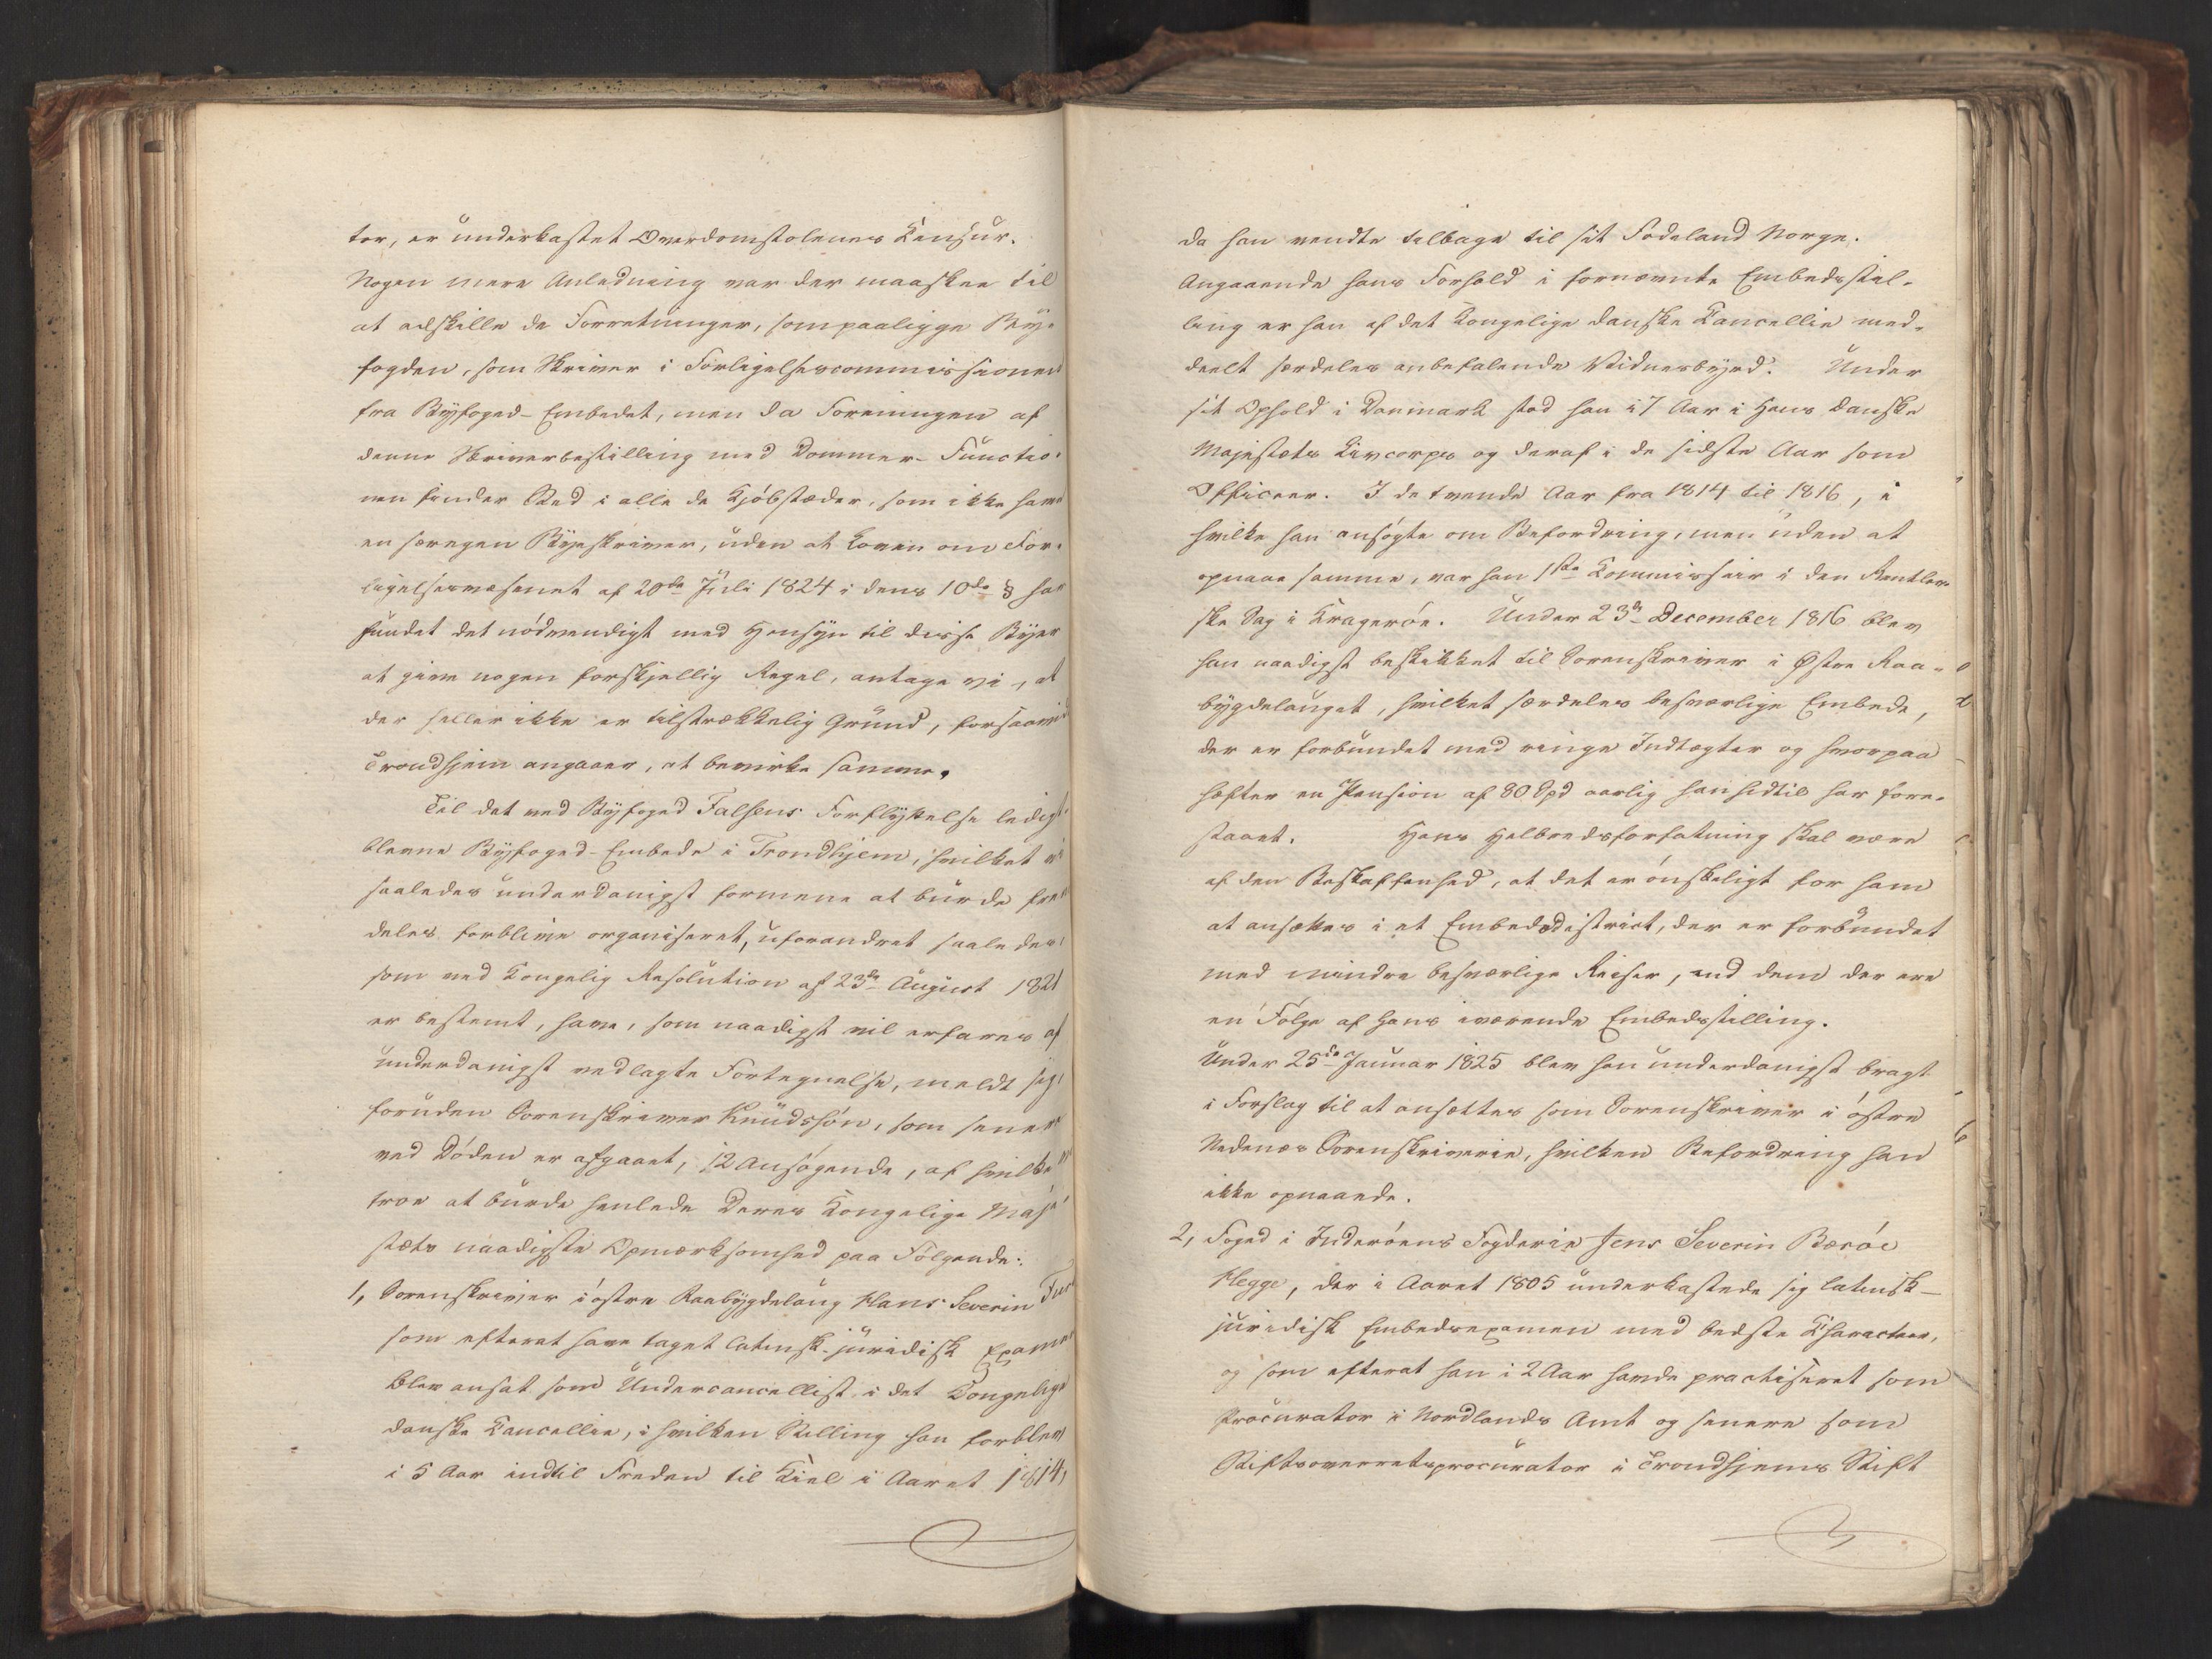 tor, er underkastet Overdomstolenes Censur.
Nogen mere Anledning var der maaskee til
at adskille de Forretninger, som paaligge By-
fogden, som Skriver i Forligelsescommissionen
fra Byfoged-Embedet, men da Foreningen af
denne Skriverbestilling med Dommer-Functio-
nen finder Sted i alle de Kjöbstæder, som ikke have
en særegen Byeskriver, uden at Loven om For-
ligelsesvæsenet af 20de Juli 1824 i dens 10de § har
fundet det nödvendigt med Hensyn til disse Byer
at give nogen forskjellig Regel, antage vi, at
der heller ikke er tilstrækkelig Grund, forsaavid
Trondhjem angaaer, at bevirke samme.
Til det ved Byfoged Falsens Forflyttelse ledigt
blevne Byfoged-Embede i Trondhjem, hvilket vi
saaledes underdanigst formene at burde frem
deles forblive organiseret, uforandret saaledes
som ved Kongelig Resolution af 23de August 1821
er bestemt, have, som naadigst vil erfares af
underdanigst vedlagte Fortegnelse, meldt sig,
foruden Sorenskriver Knudssön, som senere
ved Döden er afgaaet, 12 Ansögende, af hvilke vi
troe at burde henlede Deres Kongelige Maje
stæts naadigste Opmærksomhed paa Fölgende:
1, Sorenskriver i östre Raabygdelaug Hans Severin
som efterat have taget latinsk-juridisk Examen
blev ansat som Undercancellist i det Kongelige
danske Cancellie, i hvilken Stilling han forblev
i 5 Aar indtil Freden til Kiel i Aaret 1814,
da han vendte tilbage til sit Födeland Norge.
Angaaende hans Forhold i fornævnte Embedsstil-
ling er han af det Kongelige danske Cancellie med-
deelt særdeles anbefalende Vidnesbyrd. Under
sit Ophold i Danmark stod han i 7 Aar i Hans danske
Majestæts Livcorps og deraf i de sidste Aar som
Officeer. I de tvende Aar fra 1814 til 1816, i
hvilke han ansögte om Befordring, men uden at
opnaae samme, var han 1ste Kommissair i den Rentler
ske Sag i Krageröe. Under 23de December 1816 blev
han naadigst beskikket til Sorenskriver i Østre Raa-
bygdelauget, hvilket særdeles besværlige Embede,
der er forbundet med ringe Indtægter og hvorpaa
hæfter en Pension af 80 Spd aarlig han hidtil har fore-
staaet. Hans Helbredsforfatning skal være
af den Beskaffenhed, at det er önskeligt for ham
at ansættes i et Embedsdistrict, der er forbundet
med mindre besværlige Reiser, end dem der ere
en Fölge af hans iværende Embedsstilling.
Under 25de Januar 1825 blev han underdanigst bragt
i Forslag til at ansættes som Sorenskriver i östre
Nedenæs Sorenskriverie, hvilken Befordring han
ikke opnaaede.
2, Foged i Inderöens Fogderie Jens Severin Beröe
Hegge, der i Aaret 1805 underkastede sig latinsk-
juridisk Embedsexamen med bedste Character,
og som efterat han i 2 Aar havde practiseret som
Procurator i Nordlands Amt og senere som
Stiftsoverretsprocurator i Trondhjems Stift